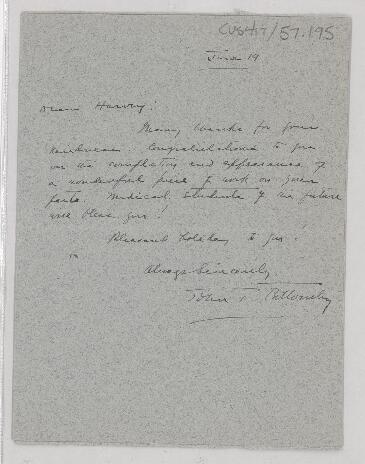 CUSH17/57.195
June 19
Dear Harvey:
Many thanks for your
kindness. Congratulations to you
on the completion and appearance of
a wonderful piece of work on your
part. Medical students of the future
will bless you!
Pleasant holiday to you.
Always Sincerely
John